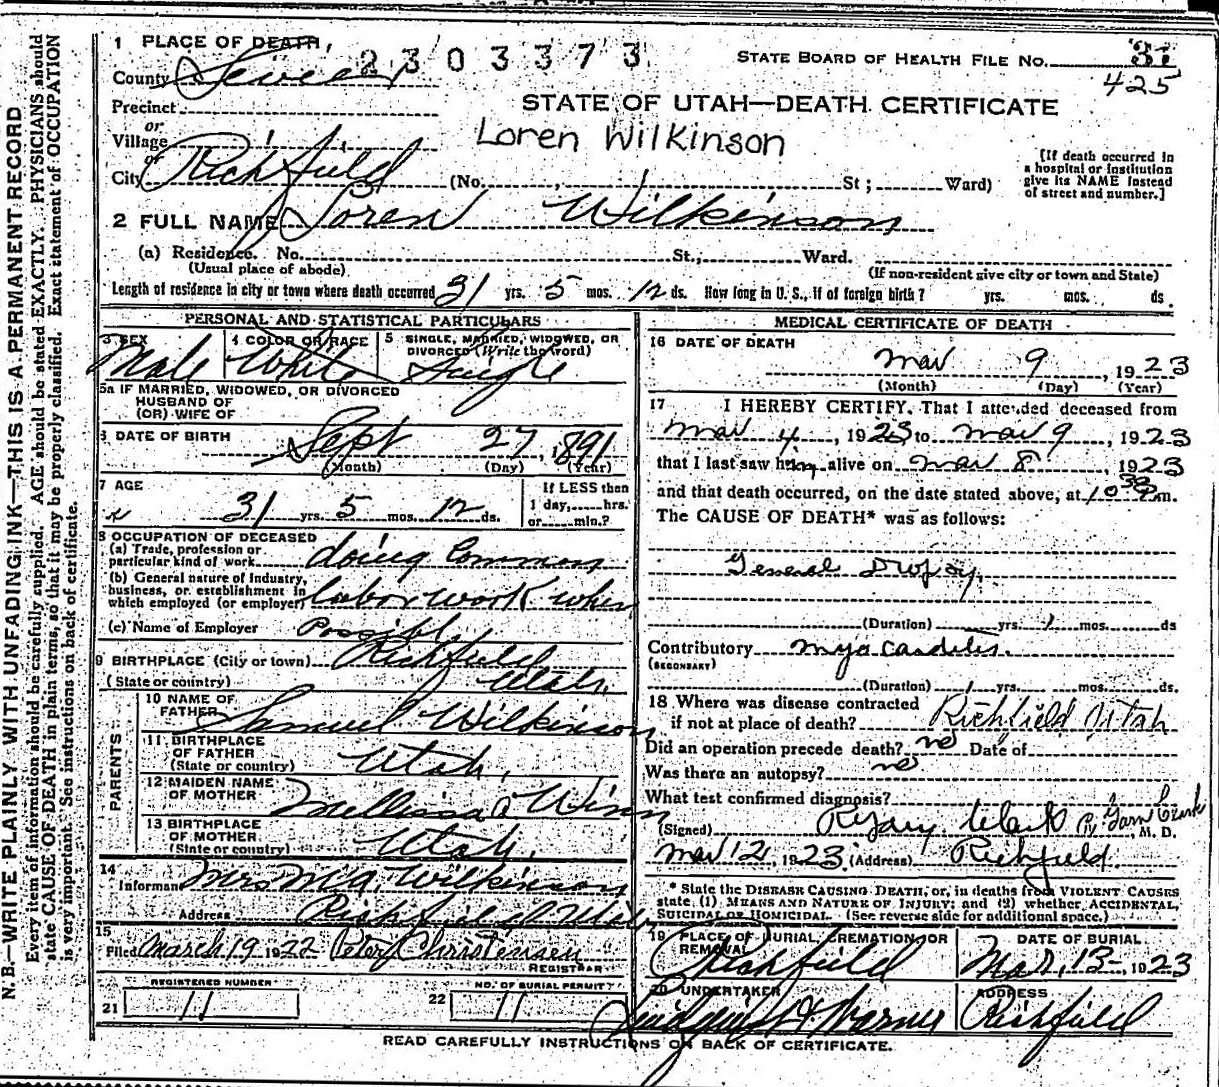 1 PLACE OF DEATH,
2303373
STATE BOARD OF HEALTH FILE NO. 37
425
County Sevier
Precinct
or
Village
or
City Richfield
STATE OF UTAH—DEATH CERTIFICATE
Loren Wilkinson
(No. , St ; Ward)
[If death occurred in
a hospital or institution
give its NAME instead
of street and number.]
2 FULL NAME Loren Wilkinson
(a) Residence. No. St., Ward.
(Usual place of abode)
(If non-resident give city or town and State)
Length of residence in city or town where death occurred 31 yrs. 5 mos. 12 ds. How long in U. S., if of foreign birth? yrs. mos. ds.
PERSONAL AND STATISTICAL PARTICULARS
3 SEX
Male
4 COLOR OR RACE
White
5 SINGLE, MARRIED, WIDOWED, OR
DIVORCED (Write the word)
Single
5a IF MARRIED, WIDOWED, OR DIVORCED
HUSBAND OF
(OR) WIFE OF
6 DATE OF BIRTH Sept 27, 1891
(Month) (Day) (Year)
7 AGE
31 yrs. 5 mos. 12 ds.
If LESS then
1 day, hrs.
or min.?
8 OCCUPATION OF DECEASED
(a) Trade, profession or
particular kind of work doing Common
(b) General nature of Industry,
business, or establishment in
which employed (or employer) labor work when
(c) Name of Employer Possible
9 BIRTHPLACE (City or town) Richfield
(State or country) Utah,
PARENTS
10 NAME OF
FATHER Samuel Wilkinson
11 BIRTHPLACE
OF FATHER
(State or country) Utah,
12 MAIDEN NAME
OF MOTHER Mellissa A Winn
13 BIRTHPLACE
OF MOTHER
(State or country) Utah.
14
Informan Mrs M.A. Wilkinson
Address Richfield Utah
15
Filed March 19 1922 Peter Christensen
REGISTRAR
REGISTERED NUMBER
21 11
NO. OF BURIAL PERMIT
22 11
MEDICAL CERTIFICATE OF DEATH
16 DATE OF DEATH
Mar 9, 1923
(Month) (Day) (Year)
17 I HEREBY CERTIFY. That I attended deceased from
Mar 4, 1923 to Mar 9, 1923
that I last saw him alive on Mar 8, 1923
and that death occurred, on the date stated above, at 10 30 P m.
The CAUSE OF DEATH* was as follows:
General Dropsy.
(Duration) yrs. 1 mos. ds
Contributory Myocarditis.
(SECONDARY)
(Duration) 1 yrs. mos. ds.
18 Where was disease contracted
if not at place of death? Richfield Utah
Did an operation precede death? no Date of
Was there an autopsy? no
What test confirmed diagnosis?
(Signed) M. D.
Mar 12, 1923 (Address) Richfield.
* State the DISEASE CAUSING DEATH, or, in deaths from VIOLENT CAUSES
state (1) MEANS AND NATURE OF INJURY; and (2) whether ACCIDENTAL,
SUICIDAL OR HOMICIDAL. (See reverse side for additional space.)
19 PLACE OF BURIAL CREMATION OR
REMOVAL
Richfield
DATE OF BURIAL
Mar, 13 1923
20 UNDERTAKER
ADDRESS
Richfield
READ CAREFULLY INSTRUCTIONS ON BACK OF CERTIFICATE.
N. B.—WRITE PLAINLY WITH UNFADING INK—THIS IS A PERMANENT RECORD
Every item of information should be carefully supplied. AGE should be stated EXACTLY. PHYSICIANS should
state CAUSE OF DEATH in plain terms, so that it may be properly classified. Exact statement of OCCUPATION
is very important. See instructions on back of certificate.